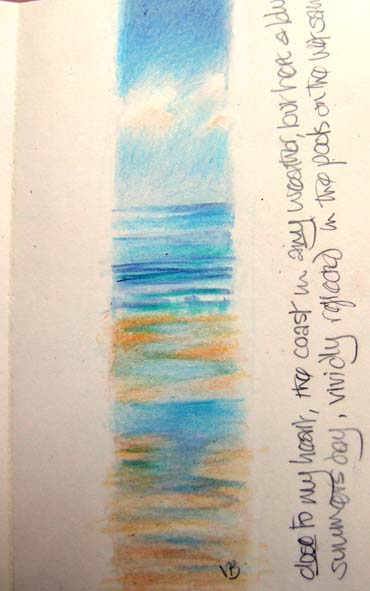 close to my heart, the coast in any weather, but here a blu
summers day, vividly reflected in the pools on the wet san
VB